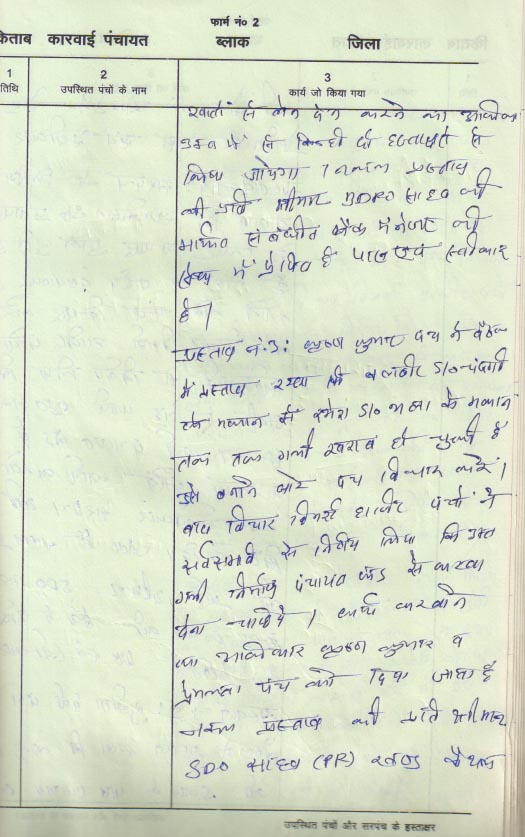 फार्म नं० 2
किताब कारवाई पंचायत ब्लाक जिला
1 2 3
तिथि उपस्थित पंचों के नाम कार्य जो किया गया
खातों से लेन देन करने का
में से किन्ही दो हस्ताक्षरों से
किया जायेगा । नकल प्रस्ताव
की प्रति श्रीमान BDPO साहब की
मार्फत संबंधीत बैंक मैनेजर की
सेवा में प्रेषित है पास एवं स्वीकार
है ।
प्रस्ताव नं:3: कृष्ण कुमार पंच ने बैठक
में प्रस्ताव रखा कि बलबीर S/o
के मकान से रमेश S/o के मकान
तक गली खराब हो चुकी है
उसे बनाने बारे पंच विचार करें ।
बाद विचार विमर्श हाजिर पंचों ने
सर्वसम्मति से निर्णय लिया कि उक्त
गली निर्माण पंचायत फंड से करवा
देना चाहिये । कार्य करवाने
का अधिकार कृष्ण कुमार व
प्रेमलता पंच को दिया जाता है
नकल प्रस्ताव की प्रति श्रीमान
SDO साहब (PR) खण्ड कैथल
उपस्थित पंचों और सरपंच के हस्ताक्षर